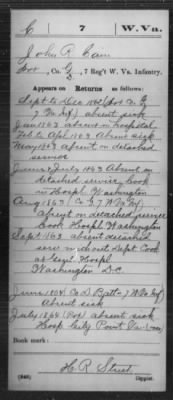 C 7 W.Va.
John R. Cain
Cor, Co. G, 7 Reg't W. Va. Infantry.
Appears on Returns as follows:
Sept to Dec 1862 (Cor Co G
7 Va Inf) absent sick
Jan 1863 absent in hospital
Feb to Apl 1863 Absent sick
May 1863 absent on detached
service
June & July 1863 Absent on
detached service, Cook
in Hospl. Washington
Aug 1863 (Co G 7 W Va Inf)
Absent on detached service
Cook Hospl Washington
Sept 1863 absent detached
serv without Dept. Cook
at Genl. Hospl.
Washington D.C.
June 1864 (Co D Batt- 7 W Va Inf)
Absent sick
July 1864 (Cor) absent sick
Hosp City Point Va
Book mark:
H R Street
(546) Copyist.